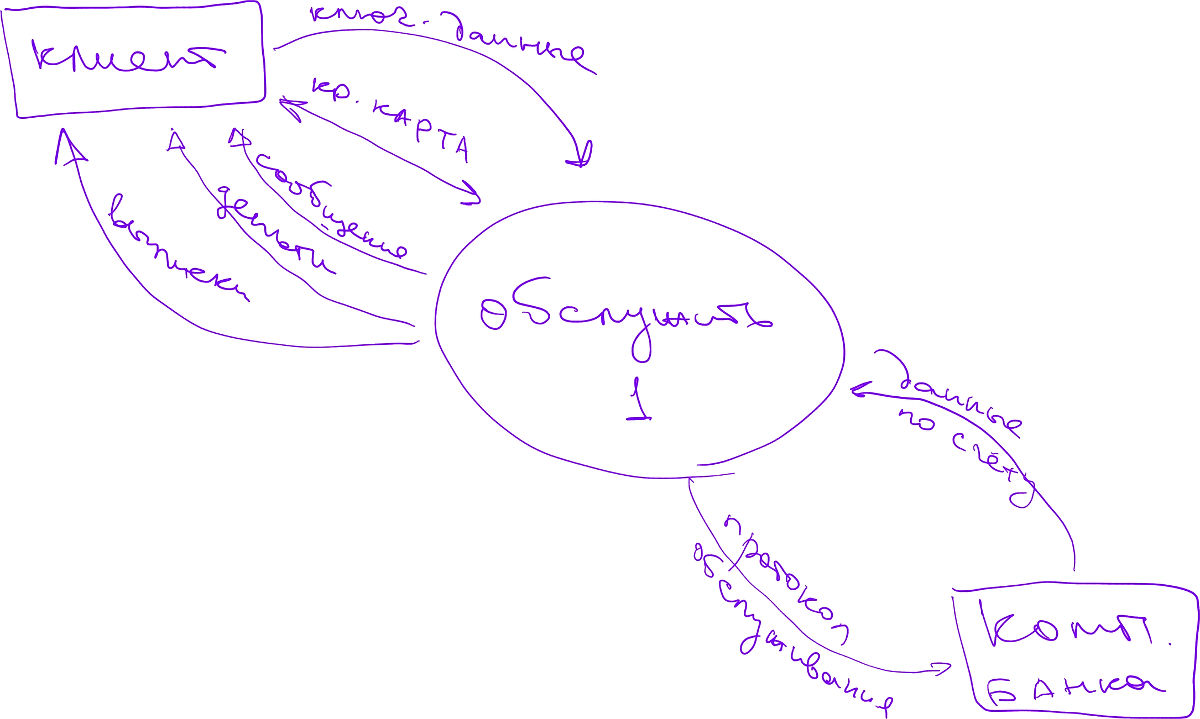 клиент
ключ. данные
кр. КАРТА
сообщение
деньги
выписки
обслужить
1
данные
по счёту
протокол
обслуживания
комп.
БАНКА